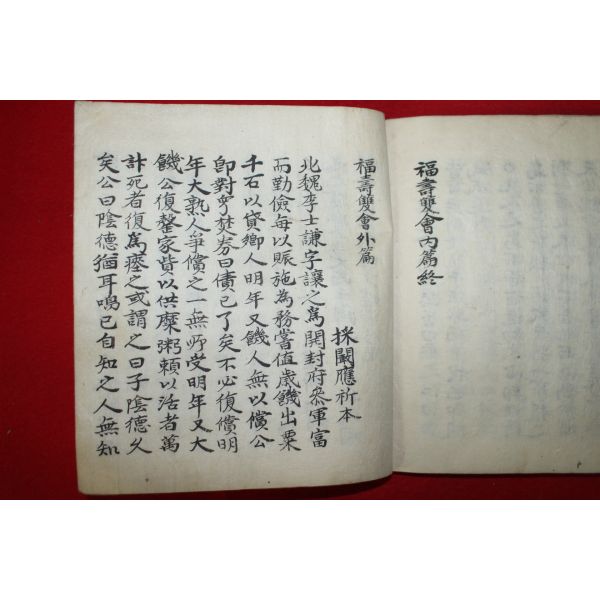 福壽雙會內篇終
福壽雙會外篇
採闞應祈本
北魏李士謙字讓之爲開封府叅軍富
而勤儉每以賑施為務甞值歲饑出粟
千石以貸鄉人明年又饑人無以償公
卽對衆焚券曰債已了矣不必復償明
年大熟人爭償之一無所受明年又大
饑公復罄家貲以供糜粥賴以活者萬
計死者復爲瘞之或謂之曰子陰德久
矣公曰陰德猶耳鳴己自知之人無知